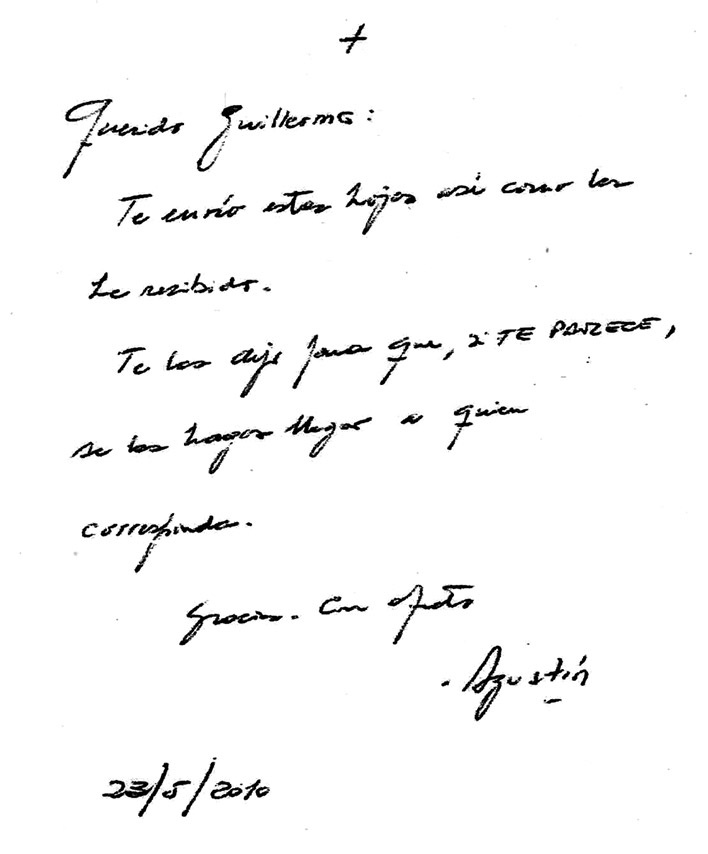 +
Querido Guillermo:
Te envío estas hojas así como las
he recibido.
Te las dejo para que, si TE PARECE,
se las hagas llegar a quien
corresponda.
Gracias. Con afecto
. Agustín
23/5/2010